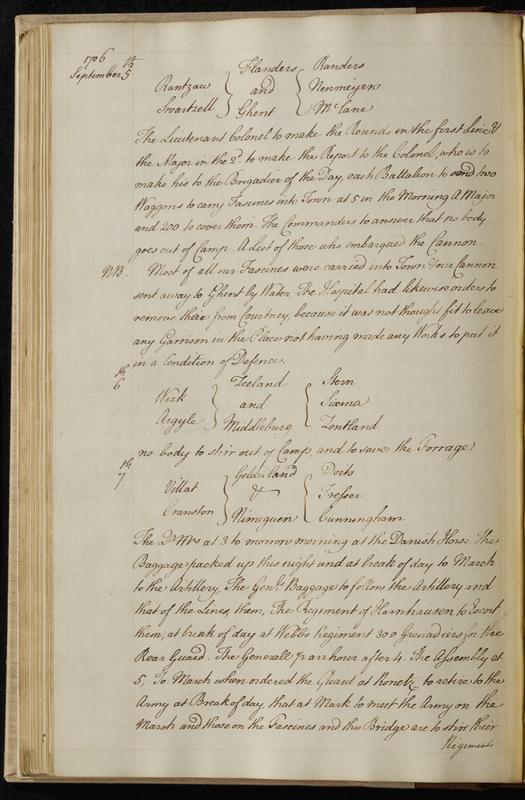 1706
September 5th
Flanders Randers
Rantzaw and Nenmeyen
Swartzell Ghent McLane
The Lieutenant Colonel to make the Rounds in the first Line &
the Major in the 2d. to make the Report to the Colonel, who is to
make his to the Brigadier of the Day, each Battalion to send two
Waggons to carry Fascines into Town at 5 in the Morning A Major
and 200 to cover them. The Commanders to answer that no body
goes out of Camp. A List of those who embarqued the Cannon.
NB. Most of all our Fascines were carried into Town & our Cannon
sent away to Ghent by Water, The Hospital had likewise orders to
remove their from Courtrey, because it was not thought fit to leave
any Garrison in the Place not having made any Works to put it
in a Condition of Defence.
6th Zeeland Stern
Week and Sixma
Argyle Middleburg Zontland
no body to stirr out of Camp, and to save the Forrage
7th Gelderland Dorts
Villat & Tresser
Cranston Nimeguen Cunningham
The at 3 to morrow morning at the Danish Horse. The
Baggage packed up this night and at break of day to March
to the Artillery, The Genls. Baggage to follow the Artillery and
that of the Lines, them, The Regiment of Harnhausen to Escort
them, at break of day at Webbs Regiment 300 Grenadiers for the
Rear Guard. The Generall ½ an hour after 4. The Assembly at
5. To March when ordered the Guard at to retire to the
Army at Break of day, that at Mark to meet the Army on the
March and those on the Fascines and the Bridge are to stirr their
Regiments